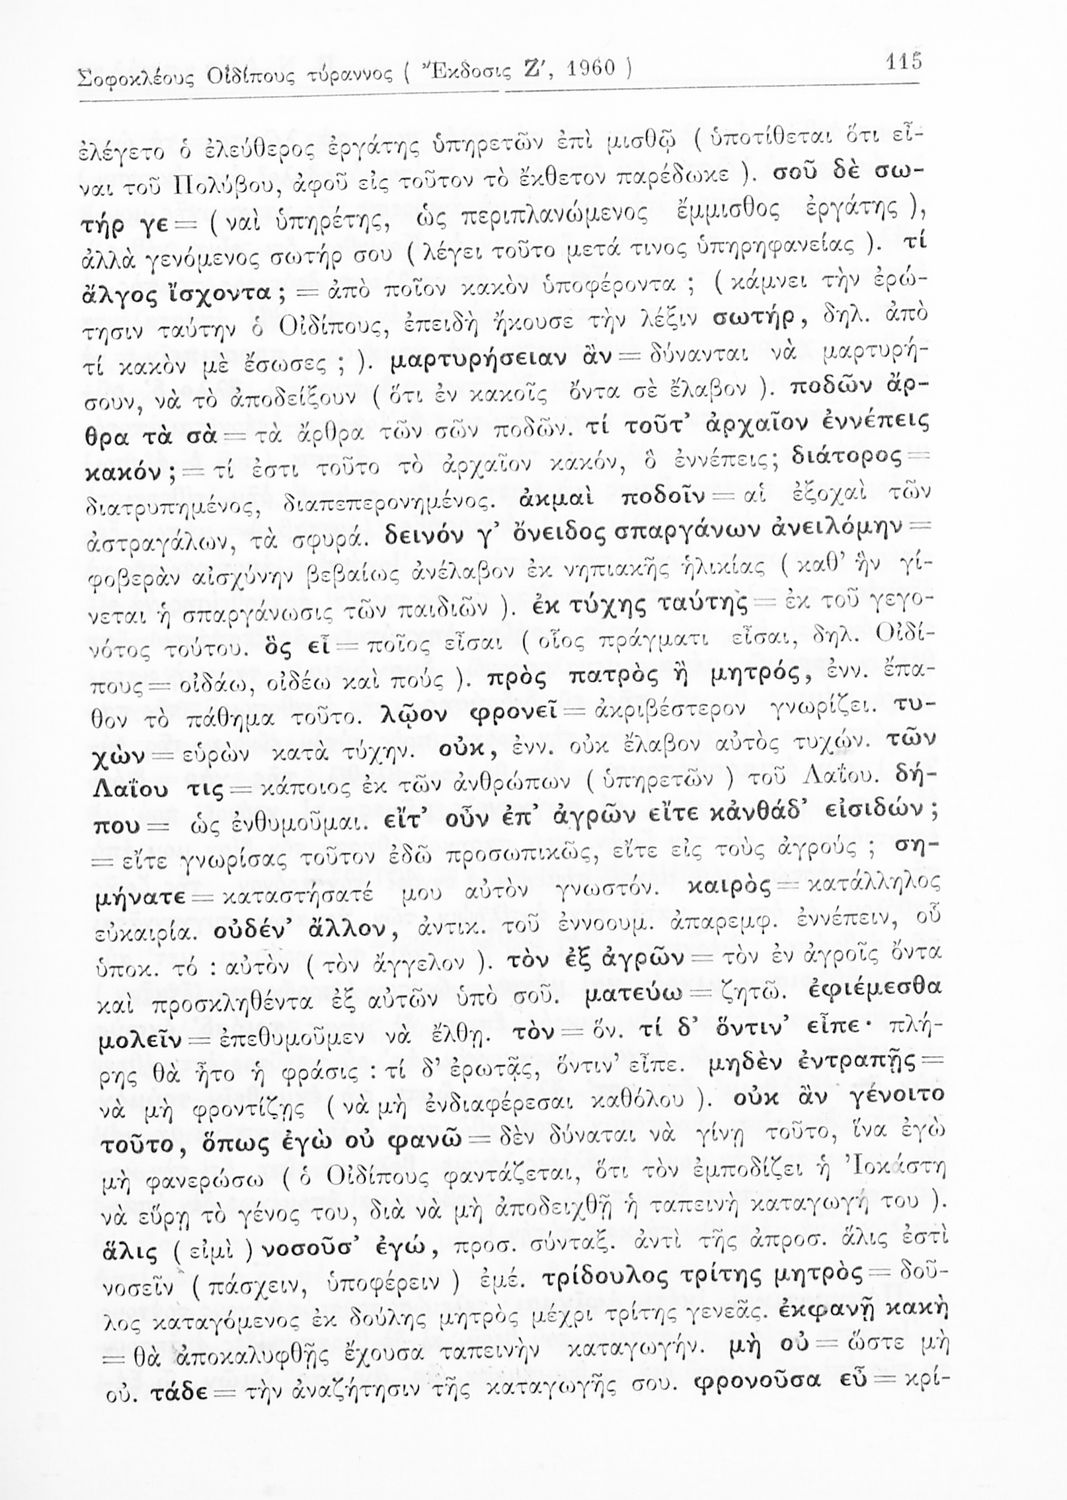 Σοφοκλέους Οἰδίπους τύραννος ( Ἔκδοσις Ζ′, 1960 ) 115
ἐλέγετο ὁ ἐλεύθερος ἐργάτης ὑπηρετῶν ἐπὶ μισθῷ ( ὑποτίθεται ὅτι εἶ-
ναι τοῦ Πολύβου, ἀφοῦ εἰς τοῦτον τὸ ἔκθετον παρέδωκε ). σοῦ δὲ σω-
τήρ γε = ( ναὶ ὑπηρέτης, ὡς περιπλανώμενος ἔμμισθος ἐργάτης ),
ἀλλὰ γενόμενος σωτήρ σου ( λέγει τοῦτο μετά τινος ὑπηρηφανείας ). τί
ἄλγος ἴσχοντα ; = ἀπὸ ποῖον κακὸν ὑποφέροντα ; ( κάμνει τὴν ἐρώ-
τησιν ταύτην ὁ Οἰδίπους, ἐπειδὴ ἤκουσε τὴν λέξιν σωτήρ, δηλ. ἀπὸ
τί κακὸν μὲ ἔσωσες ; ). μαρτυρήσειαν ἂν = δύνανται νὰ μαρτυρή-
σουν, νὰ τὸ ἀποδείξουν ( ὅτι ἐν κακοῖς ὄντα σὲ ἔλαβον ). ποδῶν ἄρ-
θρα τὰ σὰ = τὰ ἄρθρα τῶν σῶν ποδῶν. τί τοῦτ’ ἀρχαῖον ἐννέπεις
κακόν ; = τί ἐστι τοῦτο τὸ ἀρχαῖον κακόν, ὃ ἐννέπεις; διάτορος =
διατρυπημένος, διαπεπερονημένος. ἀκμαὶ ποδοῖν = αἱ ἐξοχαὶ τῶν
ἀστραγάλων, τὰ σφυρά. δεινόν γ’ ὄνειδος σπαργάνων ἀνειλόμην =
φοβερὰν αἰσχύνην βεβαίως ἀνέλαβον ἐκ νηπιακῆς ἡλικίας ( καθ’ ἣν γί-
νεται ἡ σπαργάνωσις τῶν παιδιῶν ). ἐκ τύχης ταύτης = ἐκ τοῦ γεγο-
νότος τούτου. ὃς εἶ = ποῖος εἶσαι ( οἷος πράγματι εἶσαι, δηλ. Οἰδί-
πους = οἰδάω, οἰδέω καὶ πούς ). πρὸς πατρὸς ἢ μητρός, ἐνν. ἔπα-
θον τὸ πάθημα τοῦτο. λῷον φρονεῖ = ἀκριβέστερον γνωρίζει. τυ-
χὼν = εὑρὼν κατὰ τύχην. οὐκ, ἐνν. οὐκ ἔλαβον αὐτὸς τυχών. τῶν
Λαΐου τις = κάποιος ἐκ τῶν ἀνθρώπων ( ὑπηρετῶν ) τοῦ Λαΐου. δή-
που = ὡς ἐνθυμοῦμαι. εἴτ’ οὖν ἐπ’ ἀγρῶν εἴτε κἀνθάδ’ εἰσιδών ;
= εἴτε γνωρίσας τοῦτον ἐδῶ προσωπικῶς, εἴτε εἰς τοὺς ἀγρούς ; ση-
μήνατε = καταστήσατέ μου αὐτὸν γνωστόν. καιρὸς = κατάλληλος
εὐκαιρία. οὐδέν’ ἄλλον, ἀντικ. τοῦ ἐννοουμ. ἀπαρεμφ. ἐννέπειν, οὗ
ὑποκ. τό : αὐτὸν ( τὸν ἄγγελον ). τὸν ἐξ ἀγρῶν = τὸν ἐν ἀγροῖς ὄντα
καὶ προσκληθέντα ἐξ αὐτῶν ὑπὸ σοῦ. ματεύω = ζητῶ. ἐφιέμεσθα
μολεῖν = ἐπεθυμοῦμεν νὰ ἔλθῃ. τὸν = ὅν. τί δ’ ὅντιν’ εἶπε· πλή-
ρης θὰ ἦτο ἡ φράσις : τί δ’ ἐρωτᾷς, ὅντιν’ εἶπε. μηδὲν ἐντραπῇς =
νὰ μὴ φροντίζῃς ( νὰ μὴ ἐνδιαφέρεσαι καθόλου ). οὐκ ἂν γένοιτο
τοῦτο, ὅπως ἐγὼ οὐ φανῶ = δὲν δύναται νὰ γίνῃ τοῦτο, ἵνα ἐγὼ
μὴ φανερώσω ( ὁ Οἰδίπους φαντάζεται, ὅτι τὸν ἐμποδίζει ἡ Ἰοκάστη
νὰ εὕρῃ τὸ γένος του, διὰ νὰ μὴ ἀποδειχθῇ ἡ ταπεινὴ καταγωγή του ).
ἅλις ( εἰμὶ ) νοσοῦσ’ ἐγώ, προσ. σύνταξ. ἀντὶ τῆς ἀπροσ. ἅλις ἐστὶ
νοσεῖν ( πάσχειν, ὑποφέρειν ) ἐμέ. τρίδουλος τρίτης μητρὸς = δοῦ-
λος καταγόμενος ἐκ δούλης μητρὸς μέχρι τρίτης γενεᾶς. ἐκφανῇ κακὴ
= θὰ ἀποκαλυφθῇς ἔχουσα ταπεινὴν καταγωγήν. μὴ οὐ = ὥστε μὴ
οὐ. τάδε = τὴν ἀναζήτησιν τῆς καταγωγῆς σου. φρονοῦσα εὖ = κρί-